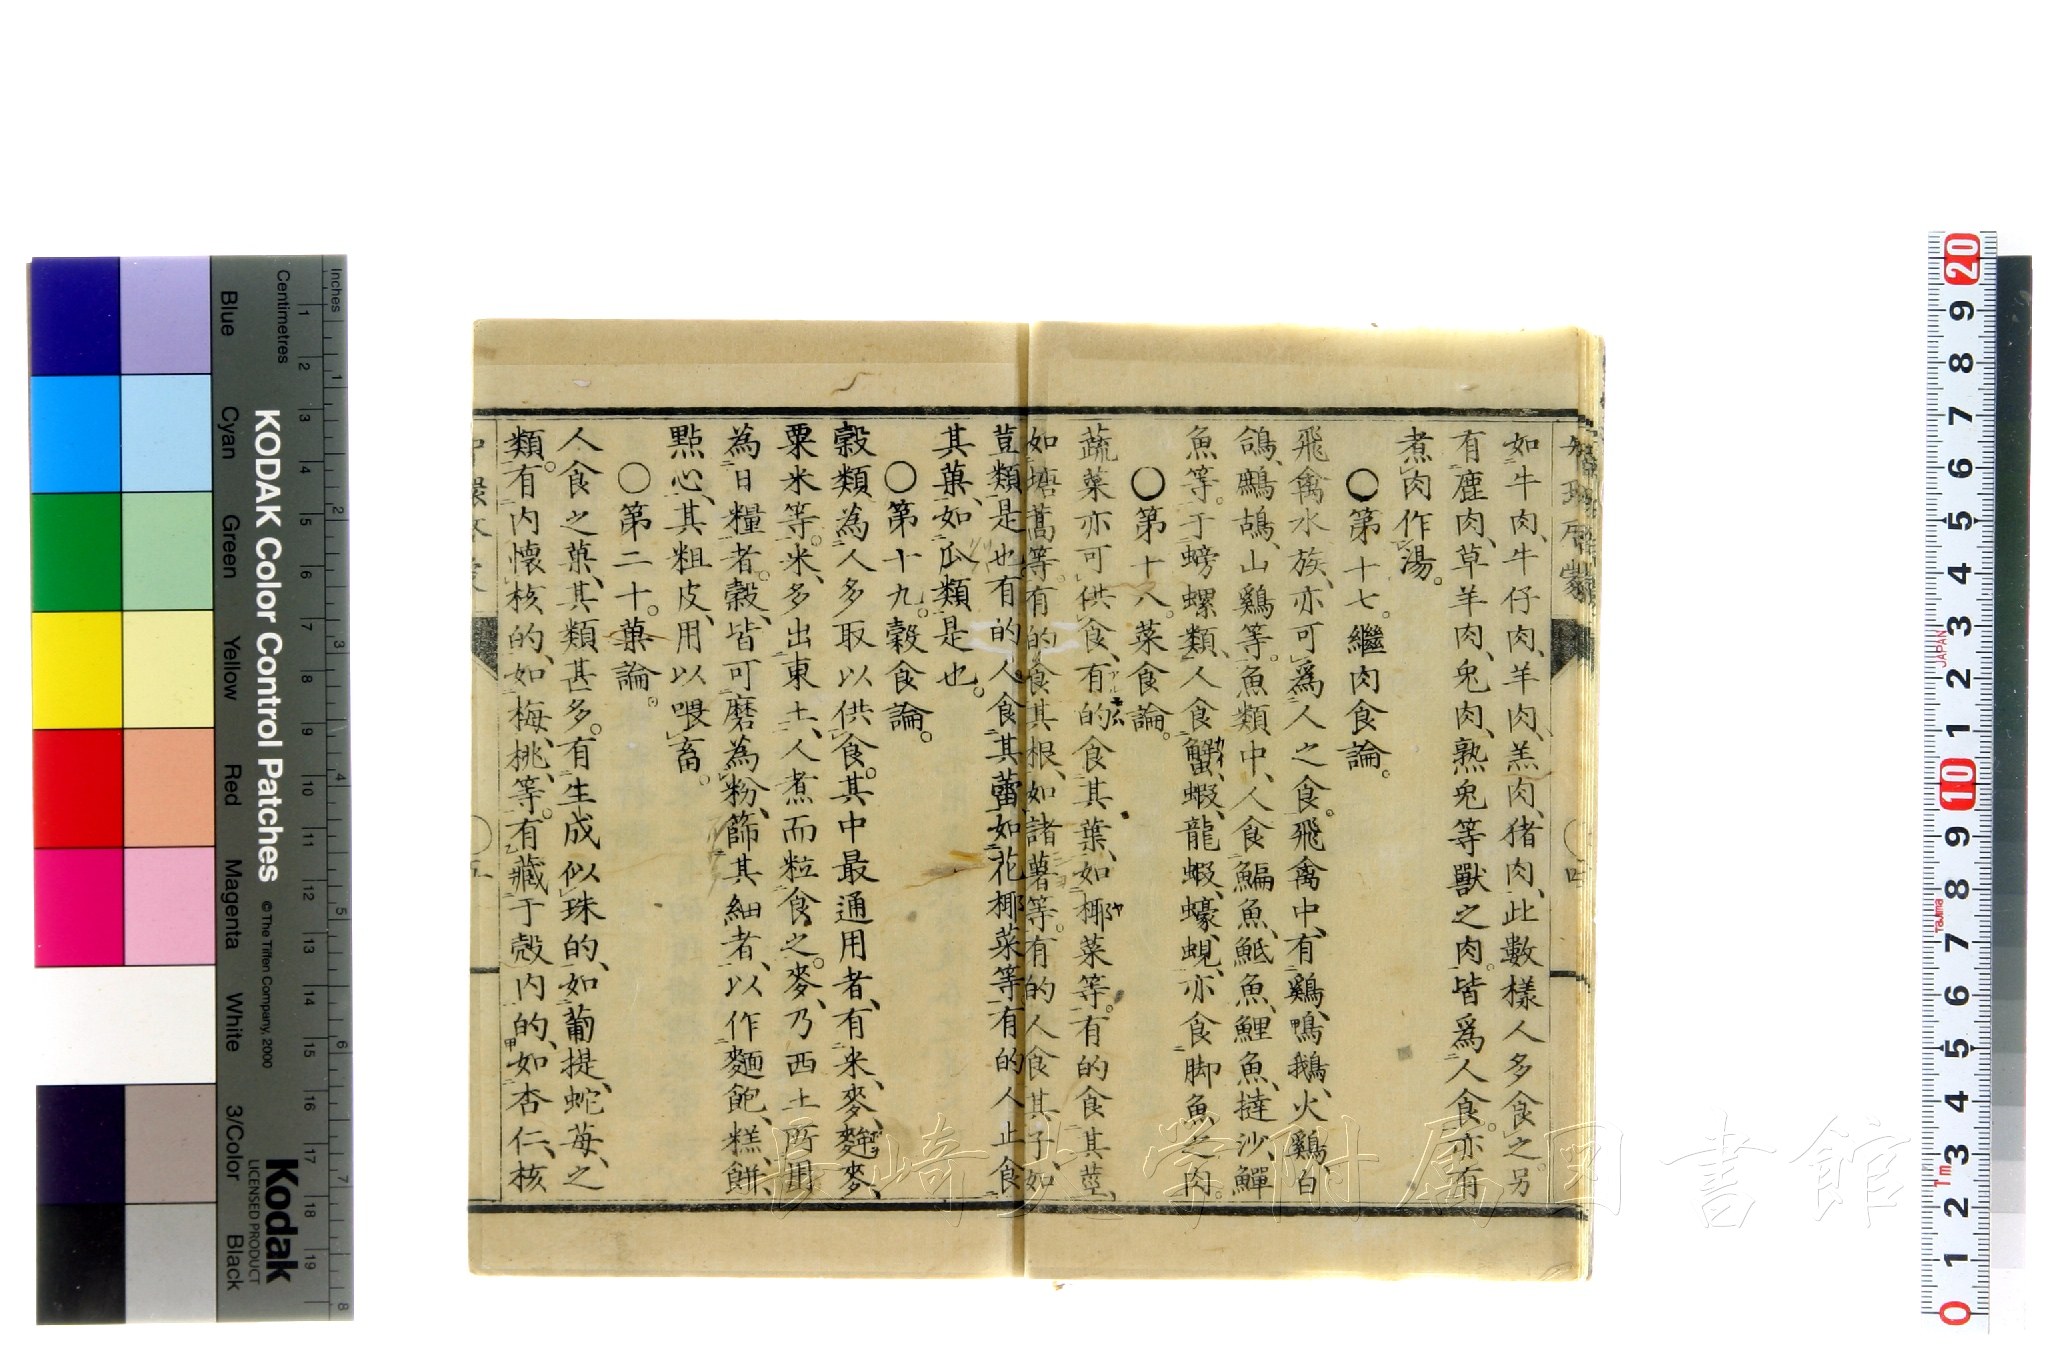 如牛肉、牛仔肉、羊肉、羔肉、猪肉、此數樣人多食之。另
有鹿肉、草羊肉、兔肉、熟兔等獸之肉。皆爲人食。亦有
煮肉作湯。
〇第十七。繼肉食論。
飛禽水族、亦可爲人之食。飛禽中、有鷄、鴨、鵝、火鷄、白
鴿、鷓鴣、山鷄等。魚類中、人食鯿魚、鯕魚、鯉魚、撻沙、鱓
魚等。于螃螺類、人食蠏、蝦、龍蝦、蠔、蜆、亦食脚魚之肉。
〇第十八。菜食論。
蔬菜亦可供食、有的食其葉、如椰菜等。有的食其莖、
如塘蒿等。有的食其根、如諸薯等。有的人食其子、如
荳類是也有的人食其蕾如花椰菜等有的人止食
其菓、如瓜類是也。
〇第十九。穀食論。
穀類為人多取以供食。其中最通用者、有米、麥、麰麥、
粟米等。米、多出東土、人煮而粒食之。麥、乃西土所用
為日糧者。穀、皆可磨為粉、篩其細者、以作麵飽、糕、餅、
點心、其粗皮、用以喂畜。
〇第二十。菓論。
人食之菓、其類甚多。有生成似珠的、如葡提、蛇苺、之
類。有内懷核的、如梅、桃、等。有藏于殼内的、如杏仁、核
五
KODAK Color Control Patches
© The Tiffen Company, 2000
Kodak
LICENSED PRODUCT
Inches
Centimetres
Blue
Cyan
Green
Yellow
Red
Magenta
White
3/Color
Black
JAPAN
Tajima
Tm
長崎大学附属図書館